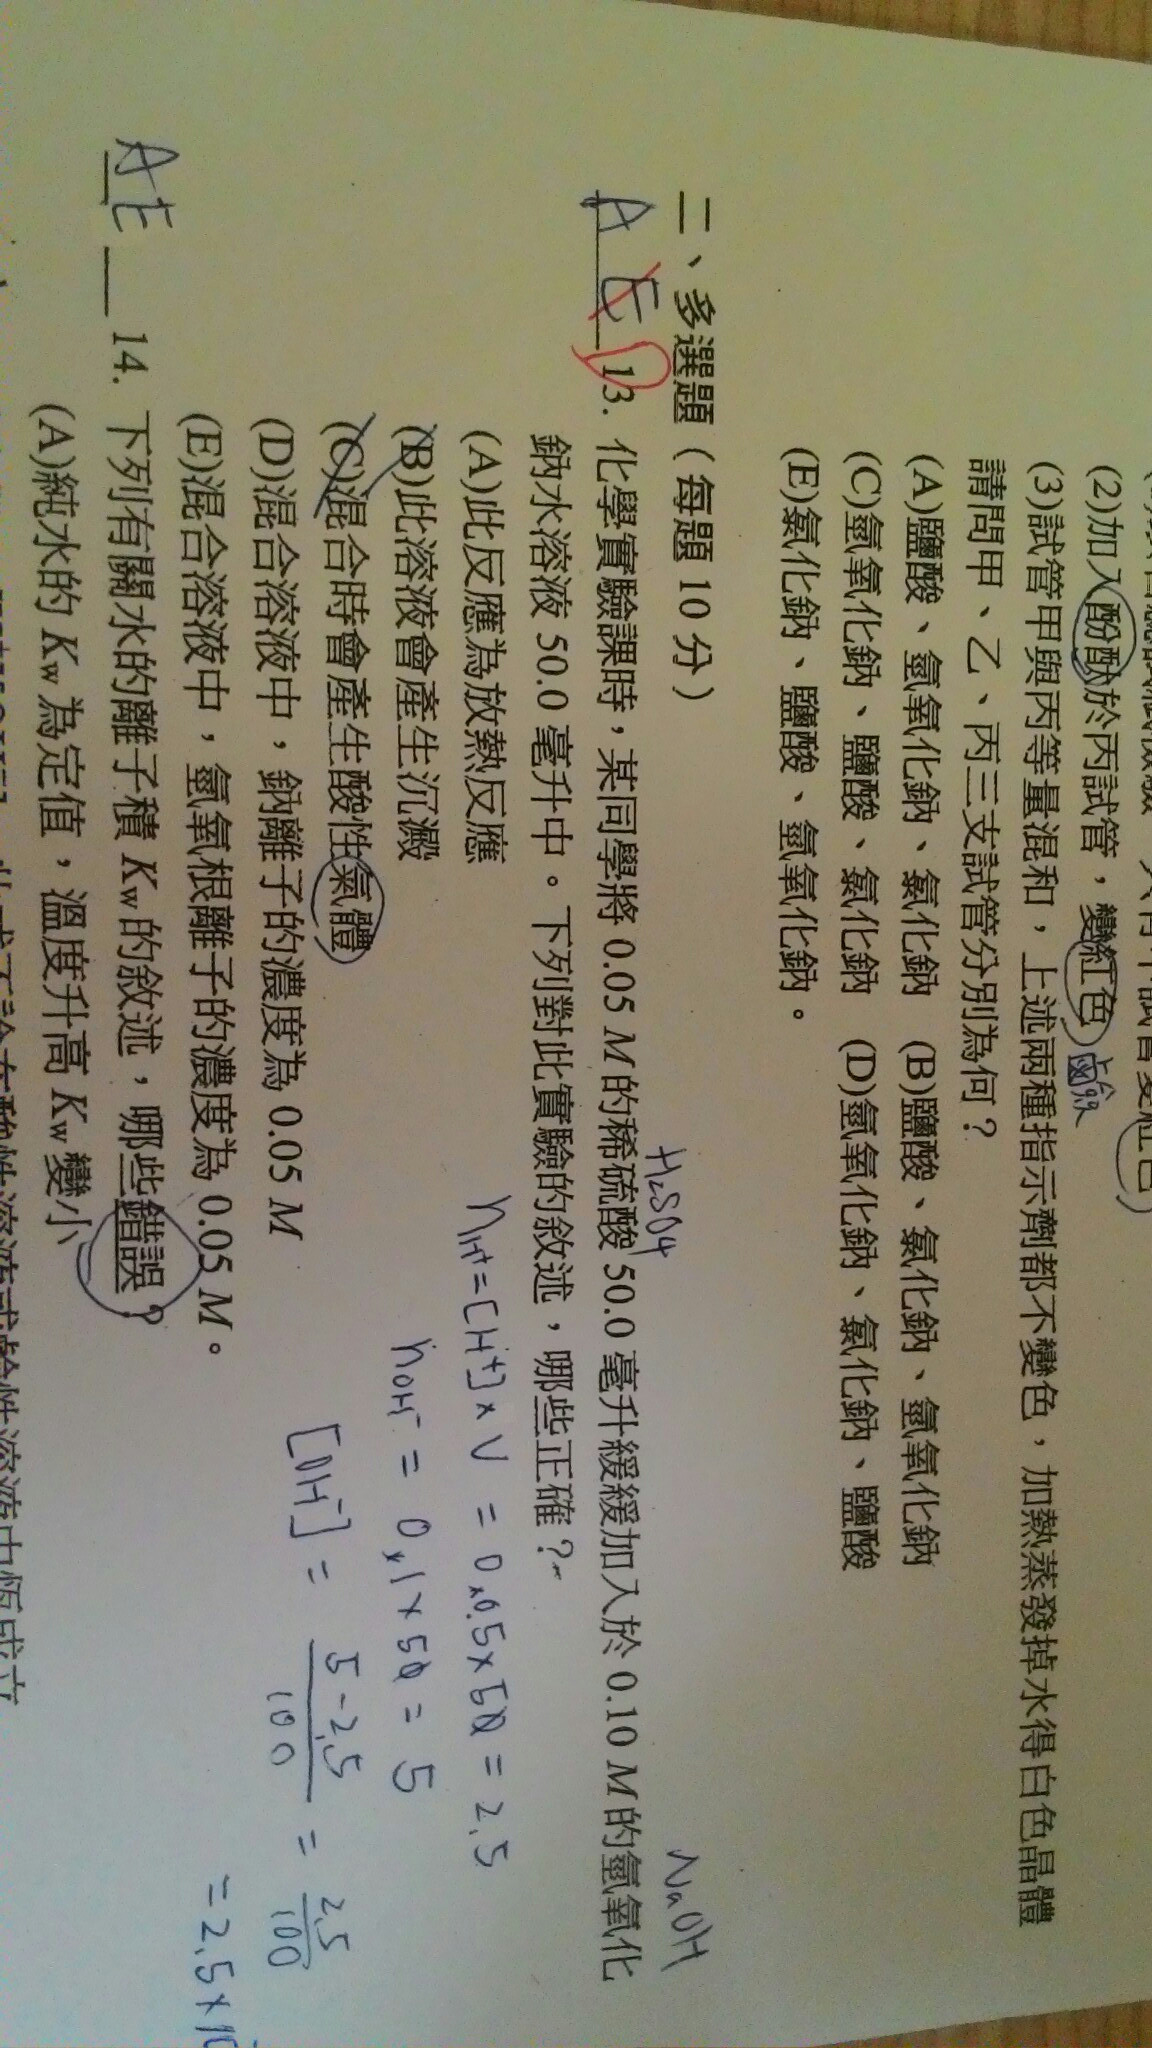 (2)加入酚酞於丙試管，變紅色
鹼
(3)試管甲與丙等量混和，上述兩種指示劑都不變色，加熱蒸發掉水得白色晶體
請問甲、乙、丙三支試管分別為何？
(A)鹽酸、氫氧化鈉、氯化鈉 (B)鹽酸、氯化鈉、氫氧化鈉
(C)氫氧化鈉、鹽酸、氯化鈉 (D)氫氧化鈉、氯化鈉、鹽酸
(E)氯化鈉、鹽酸、氫氧化鈉。
二、多選題（每題 10 分）
H2SO4
NaOH
A E D 13. 化學實驗課時，某同學將 0.05 M 的稀硫酸 50.0 毫升緩緩加入於 0.10 M 的氫氧化
鈉水溶液 50.0 毫升中。下列對此實驗的敘述，哪些正確？
(A)此反應為放熱反應
nH+ = [H+] × V = 0.05 × 50 = 2.5
(B)此溶液會產生沉澱
nOH- = 0.1 × 50 = 5
(C)混合時會產生酸性氣體
(D)混合溶液中，鈉離子的濃度為 0.05 M
[OH-] = 5-2.5 / 100 = 2.5 / 100
(E)混合溶液中，氫氧根離子的濃度為 0.05 M。
= 2.5 × 10
AE 14. 下列有關水的離子積 Kw 的敘述，哪些錯誤？
(A)純水的 Kw 為定值，溫度升高 Kw 變小